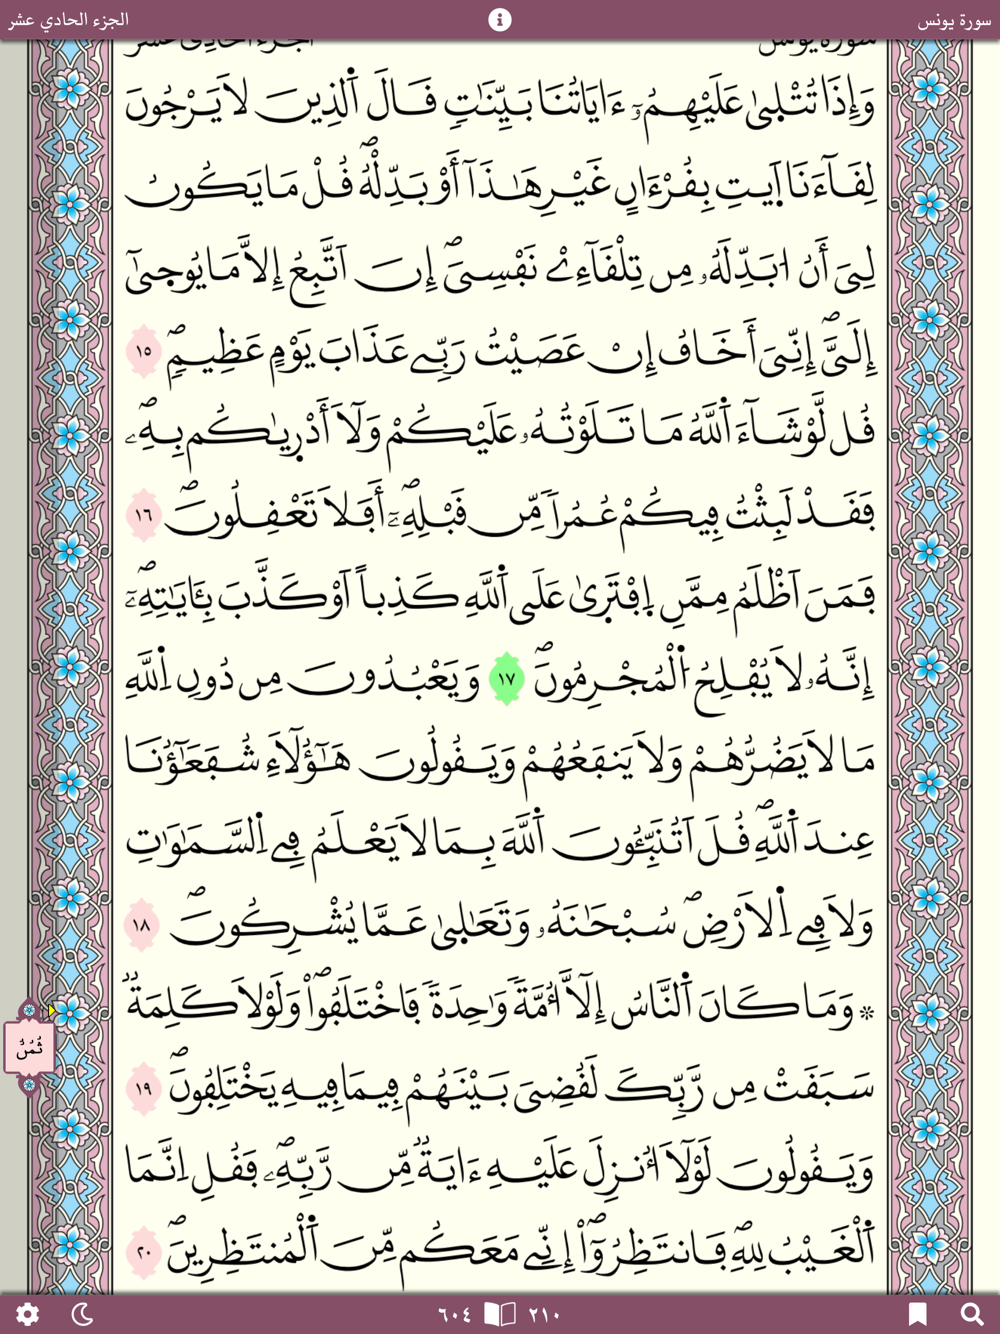 سورة يونس
الجزء الحادي عشر
سورة يونس
الجزء الحادي عشر
وَإِذَا تُتْلَىٰ عَلَيْهِمُۥٓ ءَايَاتُنَا بَيِّنَٰتٖ قَالَ ٱلذِينَ لَا يَرْجُونَ
لِقَآءَنَا ٱيتِ بِقُرْءَانٍ غَيْرِ هَٰذَآ أَوْ بَدِّلْهُۖ قُلْ مَا يَكُونُ
لِيَ أَنُ ا۟بَدِّلَهُۥ مِن تِلْقَآءِےْ نَفْسِيَۖ إِنَ ٱتَّبِعُ إِلَّا مَا يُوح۪ىٰٓ
إِلَيَّۖ إِنِّيَ أَخَافُ إِنْ عَصَيْتُ رَبِّے عَذَابَ يَوْمٍ عَظِيمٖۖ ١٥
قُل لَّوْ شَآءَ ٱللَّهُ مَا تَلَوْتُهُۥ عَلَيْكُمْ وَلَآ أَدْر۪ىٰكُم بِهِۦۖ
فَقَدْ لَبِثْتُ فِيكُمْ عُمُراٗ مِّن قَبْلِهِۦٓۖ أَفَلَا تَعْقِلُونَۖ ١٦
فَمَنَ ٱظْلَمُ مِمَّنِ ٱِفْتَر۪ىٰ عَلَى ٱللَّهِ كَذِباً ٱوْ كَذَّبَ بِـَٔايَٰتِهِۦٓۖ
إِنَّهُۥ لَا يُفْلِحُ ٱلْمُجْرِمُونَۖ ١٧ وَيَعْبُدُونَ مِن دُونِ ٱللَّهِ
مَا لَا يَضُرُّهُمْ وَلَا يَنفَعُهُمْ وَيَقُولُونَ هَٰٓؤُلَآءِ شُفَعَٰٓؤُنَا
عِندَ ٱللَّهِۖ قُلَ ٱتُنَبِّـُٔونَ ٱللَّهَ بِمَا لَا يَعْلَمُ فِے ٱلسَّمَٰوَٰتِ
وَلَا فِے ٱلَارْضِۖ سُبْحَٰنَهُۥ وَتَعَٰل۪ىٰ عَمَّا يُشْرِكُونَۖ ١٨
۞ وَمَا كَانَ ٱلنَّاسُ إِلَّآ أُمَّةٗ وَٰحِدَةٗ فَاخْتَلَفُواْۖ وَلَوْلَا كَلِمَةٞ
سَبَقَتْ مِن رَّبِّكَ لَقُضِيَ بَيْنَهُمْ فِيمَا فِيهِ يَخْتَلِفُونَۖ ١٩
ثُمُنٌ
وَيَقُولُونَ لَوْلَآ أُنزِلَ عَلَيْهِ ءَايَةٞ مِّن رَّبِّهِۦۖ فَقُلِ اِنَّمَا
ٱلْغَيْبُ لِلهِۖ فَانتَظِرُوٓاْۖ إِنِّے مَعَكُم مِّنَ ٱلْمُنتَظِرِينَۖ ٢٠
٢١٠ ٦٠٤